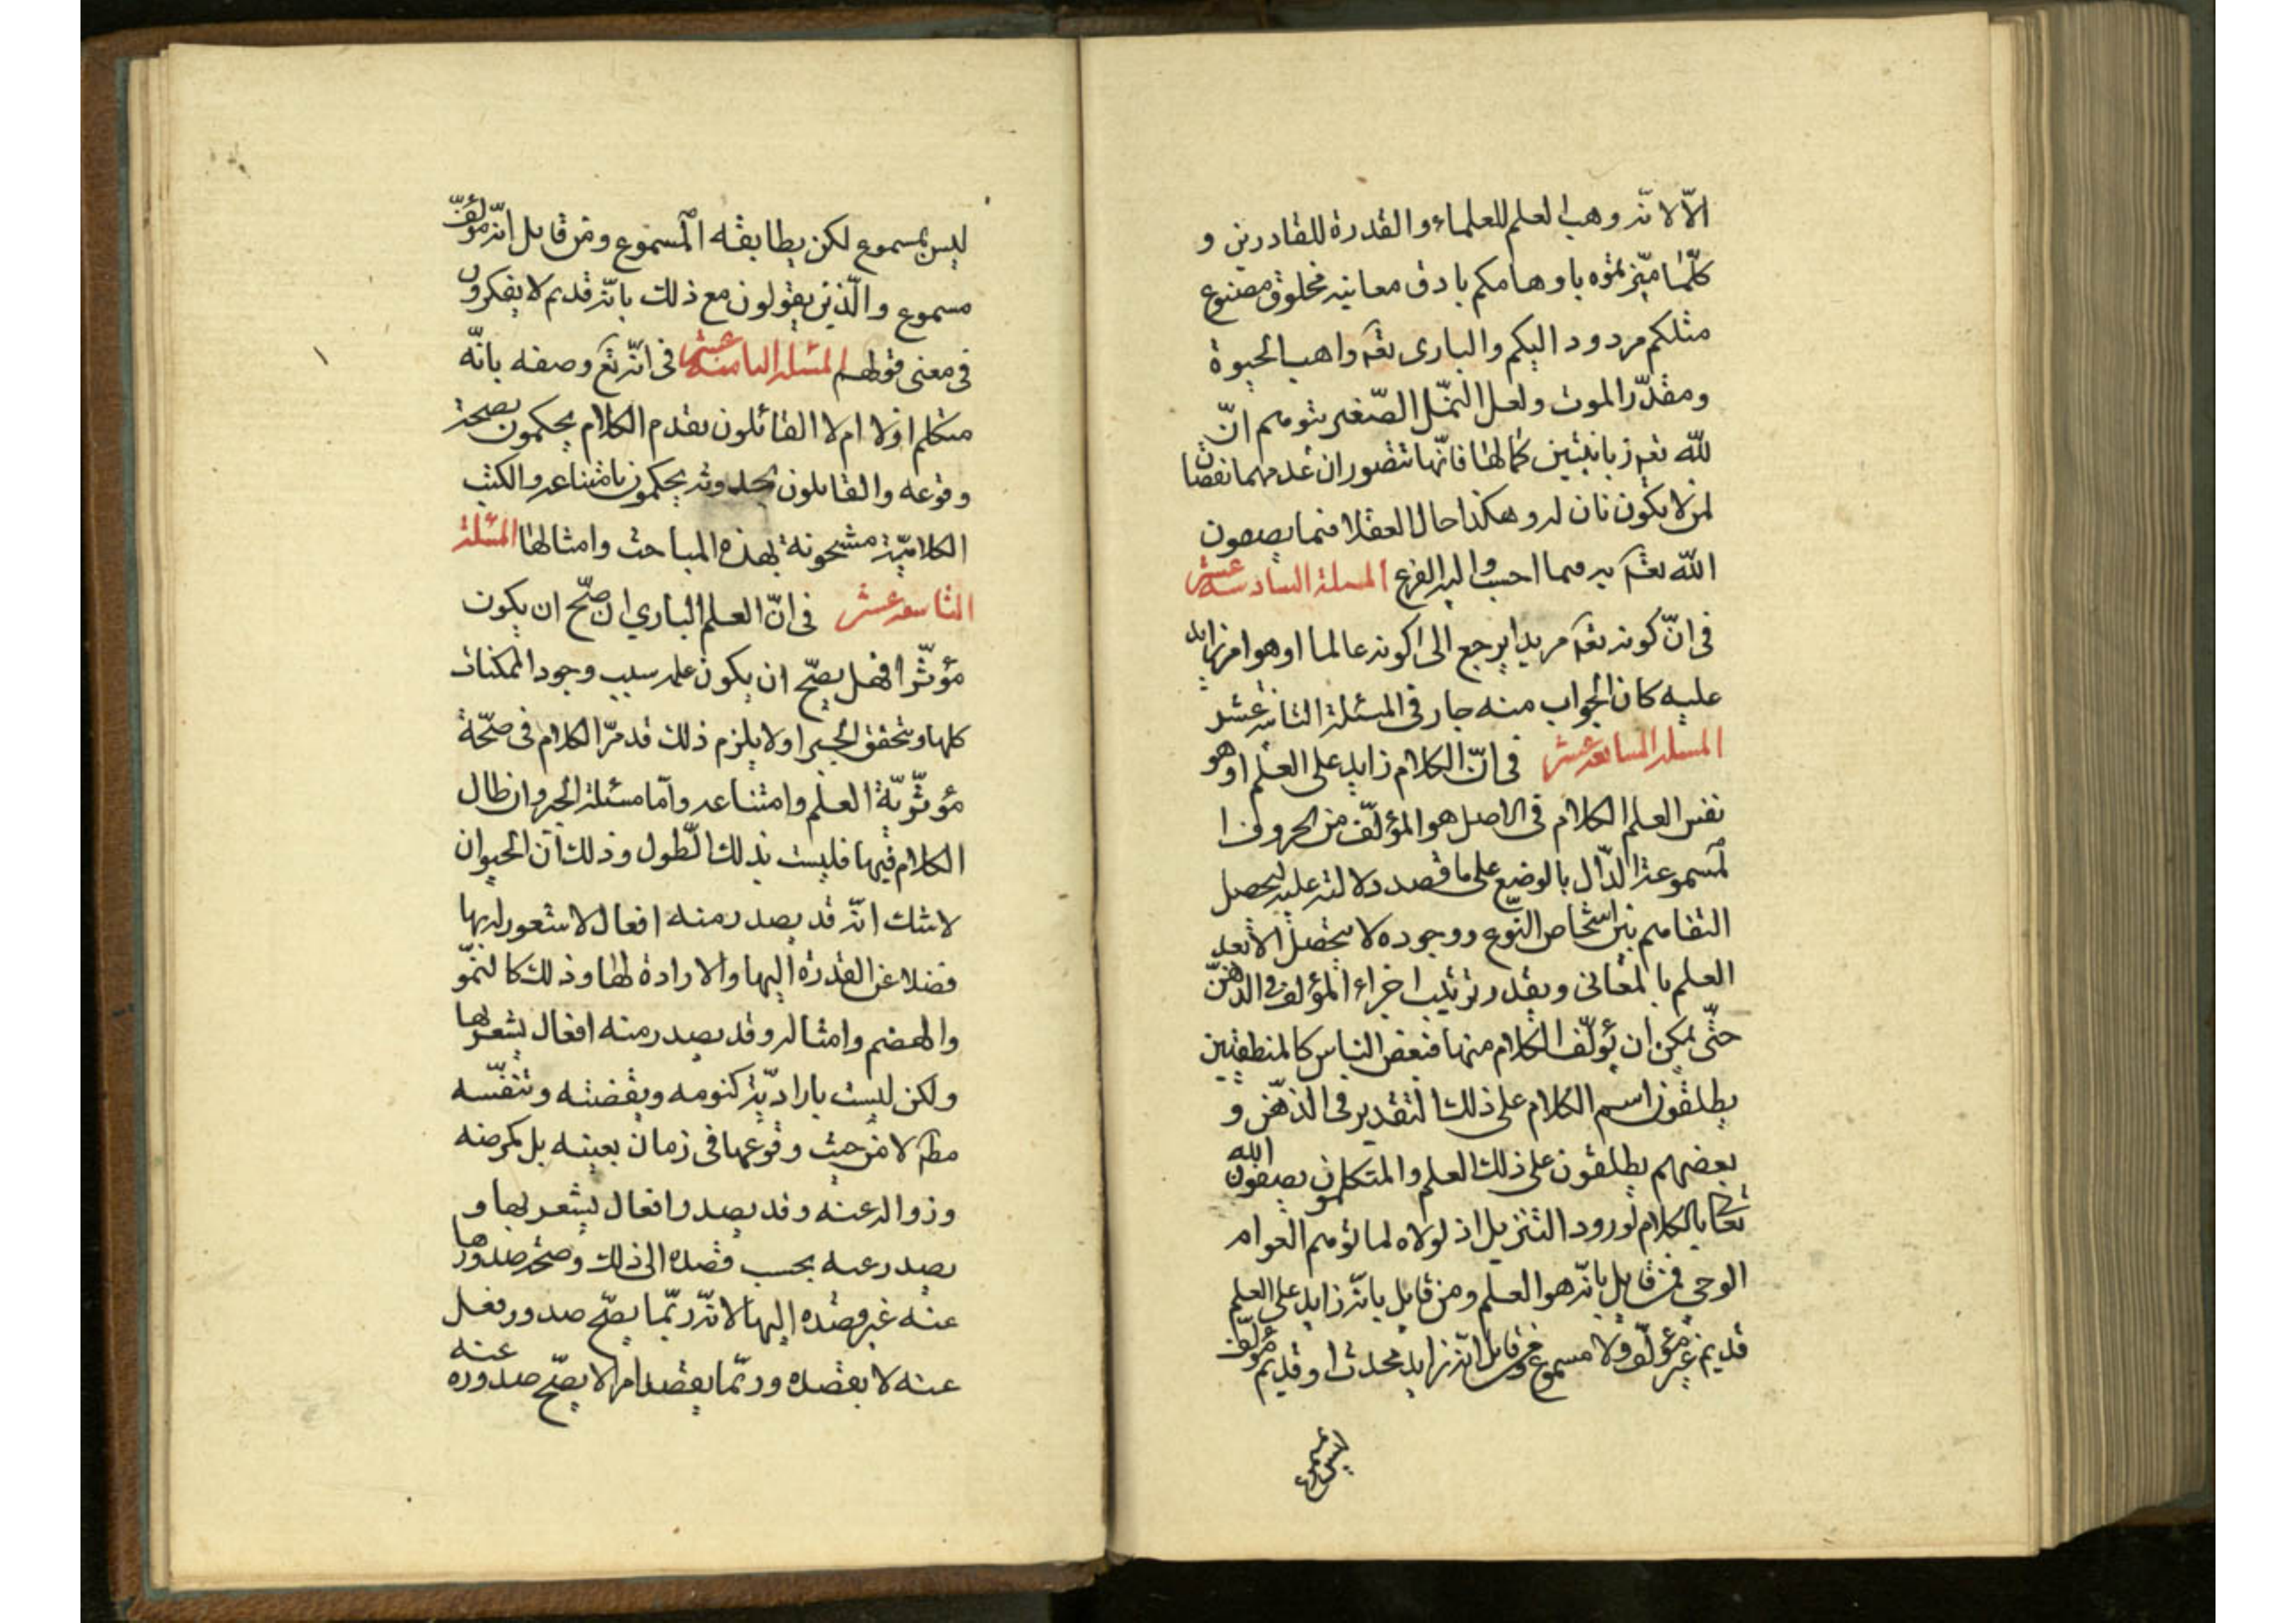 الّا لانّه وهب العلم للعلماء والقدرة للقادرين و
كلّما ميّزتموه باوهامكم بادق معانيه مخلوق مصنوع
مثلكم مردود اليكم والبارى تعم واهب الحيوة
ومقدّر الموت ولعل النمّل الصّغير يتوهم انّ
للّه تعم زبانيتين كمالها فانّها تتصور ان عدمهما نقصان
لمن لا يكون نان له وهكذا حال العقلا فيما يصفون
اللّه تعم به فيما احسب واليه الفزع المسلة السادسه عشر
فى انّ كونه تعم مريدا يرجع الى كونه عالما او هو امر زايد
عليه كان الجواب منه جار فى المسئلة الثانيه عشر
المسلة السابعه عشر فى انّ الكلام زايد على العلم او هو
نفس العلم الكلام فى الاصل هو المؤلّف من الحروف ا
لمسموعة الدّال بالوضع على ما قصد دلالته عليه ليحصل
التفاهم بين اشخاص النّوع ووجوده لا يتحصل الا بعد
العلم بالمعانى وبقدر ترتيب اجزاء المؤلف فى الذهن
حتّى يمكن ان يؤلّف الكلام منها فبعض الناس كالمنطقيين
يطلقون اسم الكلام على ذلك التقدير فى الذّهن و
بعضهم يطلقون على ذلك العلم والمتكلمون يصفون الله
تعالى بالكلام لورود التنزيل اذ لولاه لما توهم العوام
الوحى فمن قايل بانّه هو العلم ومن قايل بانّه زايد على العلم
قديم غير مؤلّف ولا مسموع ومن قايل انّه زايد محدث او قديم مؤلّف
ليس بمسموع
ليس بمسموع لكن يطابقه المسموع ومن قايل انّه مؤلّف
مسموع والّذين يقولون مع ذلك بانّه قديم لا يفكرون
فى معنى قولهم المسئلة الثامنه عشر فى انّه تع وصفه بانّه
متكلم اولا ام لا القائلون بقدم الكلام يحكمون بصحة
وقوعه والقايلون بحدوثه يحكمون بامتناعه والكتب
الكلاميّة مشحونة بهذه المباحث وامثالها المسئلة
التاسعه عشر فى انّ العلم البارى ان صحّ ان يكون
مؤثّرا فهل يصحّ ان يكون علمه سبب وجود الممكنات
كلها ويتحقق الجبر او لا يلزم ذلك قد مرّ الكلام فى صحّة
مؤثّريّة العلم وامتناعه وامّا مسئلة الجبر وان طال
الكلام فيها فليست بذلك الطّول وذلك انّ الحيوان
لا شك انّه قد يصدر منه افعال لا شعور له بها
فضلا عن القدرة اليها والارادة لها وذلك كالنموّ
والهضم وامثاله وقد يصدر منه افعال يشعر بها
ولكن ليست باراديّة كنومه ويقضته وتنفّسه
مطم لا من حيث وقوعها فى زمان بعينه بل كمرضه
وزواله عنه وقد يصدر افعال يشعر بها و
يصدر عنه بحسب قصده الى ذلك وصحّ صدورها
عنه غير قصده اليها لانّه ربّما يصحّ صدور فعل
عنه لا بقصده وربّما يقصد امرا لا يصحّ صدوره عنه